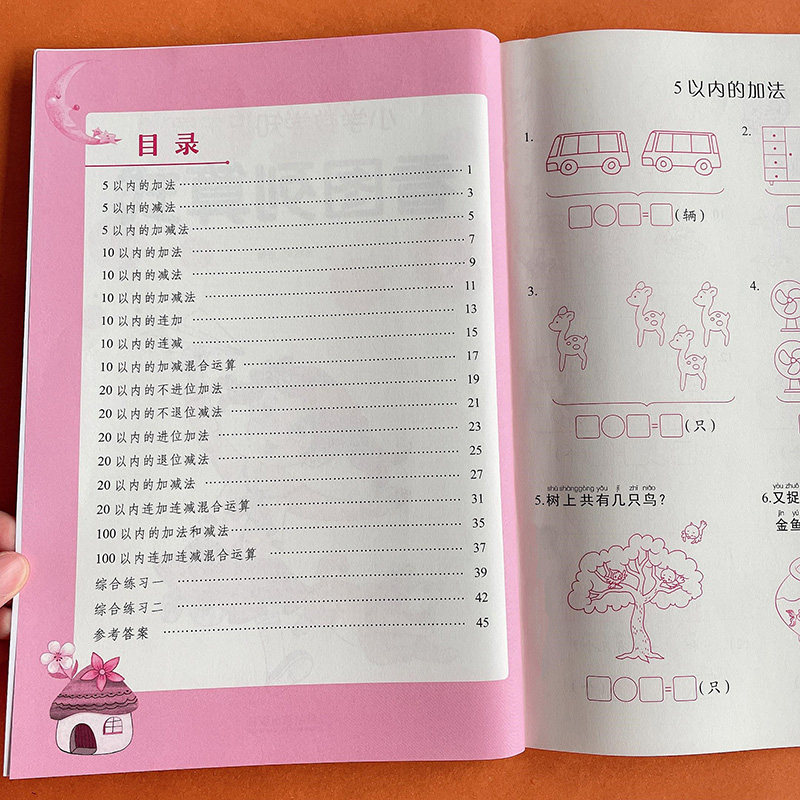 目录
5以内的加法 1
5以内的减法 3
5以内的加减法 5
10以内的加法 7
10以内的减法 9
10以内的加减法 11
10以内的连加 13
10以内的连减 15
10以内的加减混合运算 17
20以内的不进位加法 19
20以内的不退位减法 21
20以内的进位加法 23
20以内的退位减法 25
20以内的加减法 27
20以内连加连减混合运算 31
100以内的加法和减法 35
100以内连加连减混合运算 37
综合练习一 39
综合练习二 42
参考答案 45
5以内的加法
1.
2.
□○□=□(辆)
3.
4.
□○□=□(只)
shù shàng gòng yǒu jǐ zhī niǎo
5.树上共有几只鸟?
□○□=□(只)
yòu zhuō
6.又捉
jīn yú
金鱼